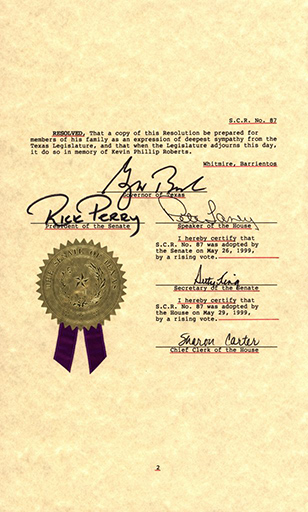 S.C.R. No. 87
RESOLVED, That a copy of this Resolution be prepared for
members of his family as an expression of deepest sympathy from the
Texas Legislature, and that when the Legislature adjourns this day,
it do so in memory of Kevin Phillip Roberts.
Whitmire, Barrientos
Governor of Texas
Rick Perry
Pete Laney
President of the Senate
Speaker of the House
I hereby certify that
S.C.R. No. 87 was adopted by
the Senate on May 26, 1999,
by a rising vote.
Betty King
Secretary of the Senate
I hereby certify that
S.C.R. No. 87 was adopted by
the House on May 29, 1999,
by a rising vote.
Sharon Carter
Chief Clerk of the House
2